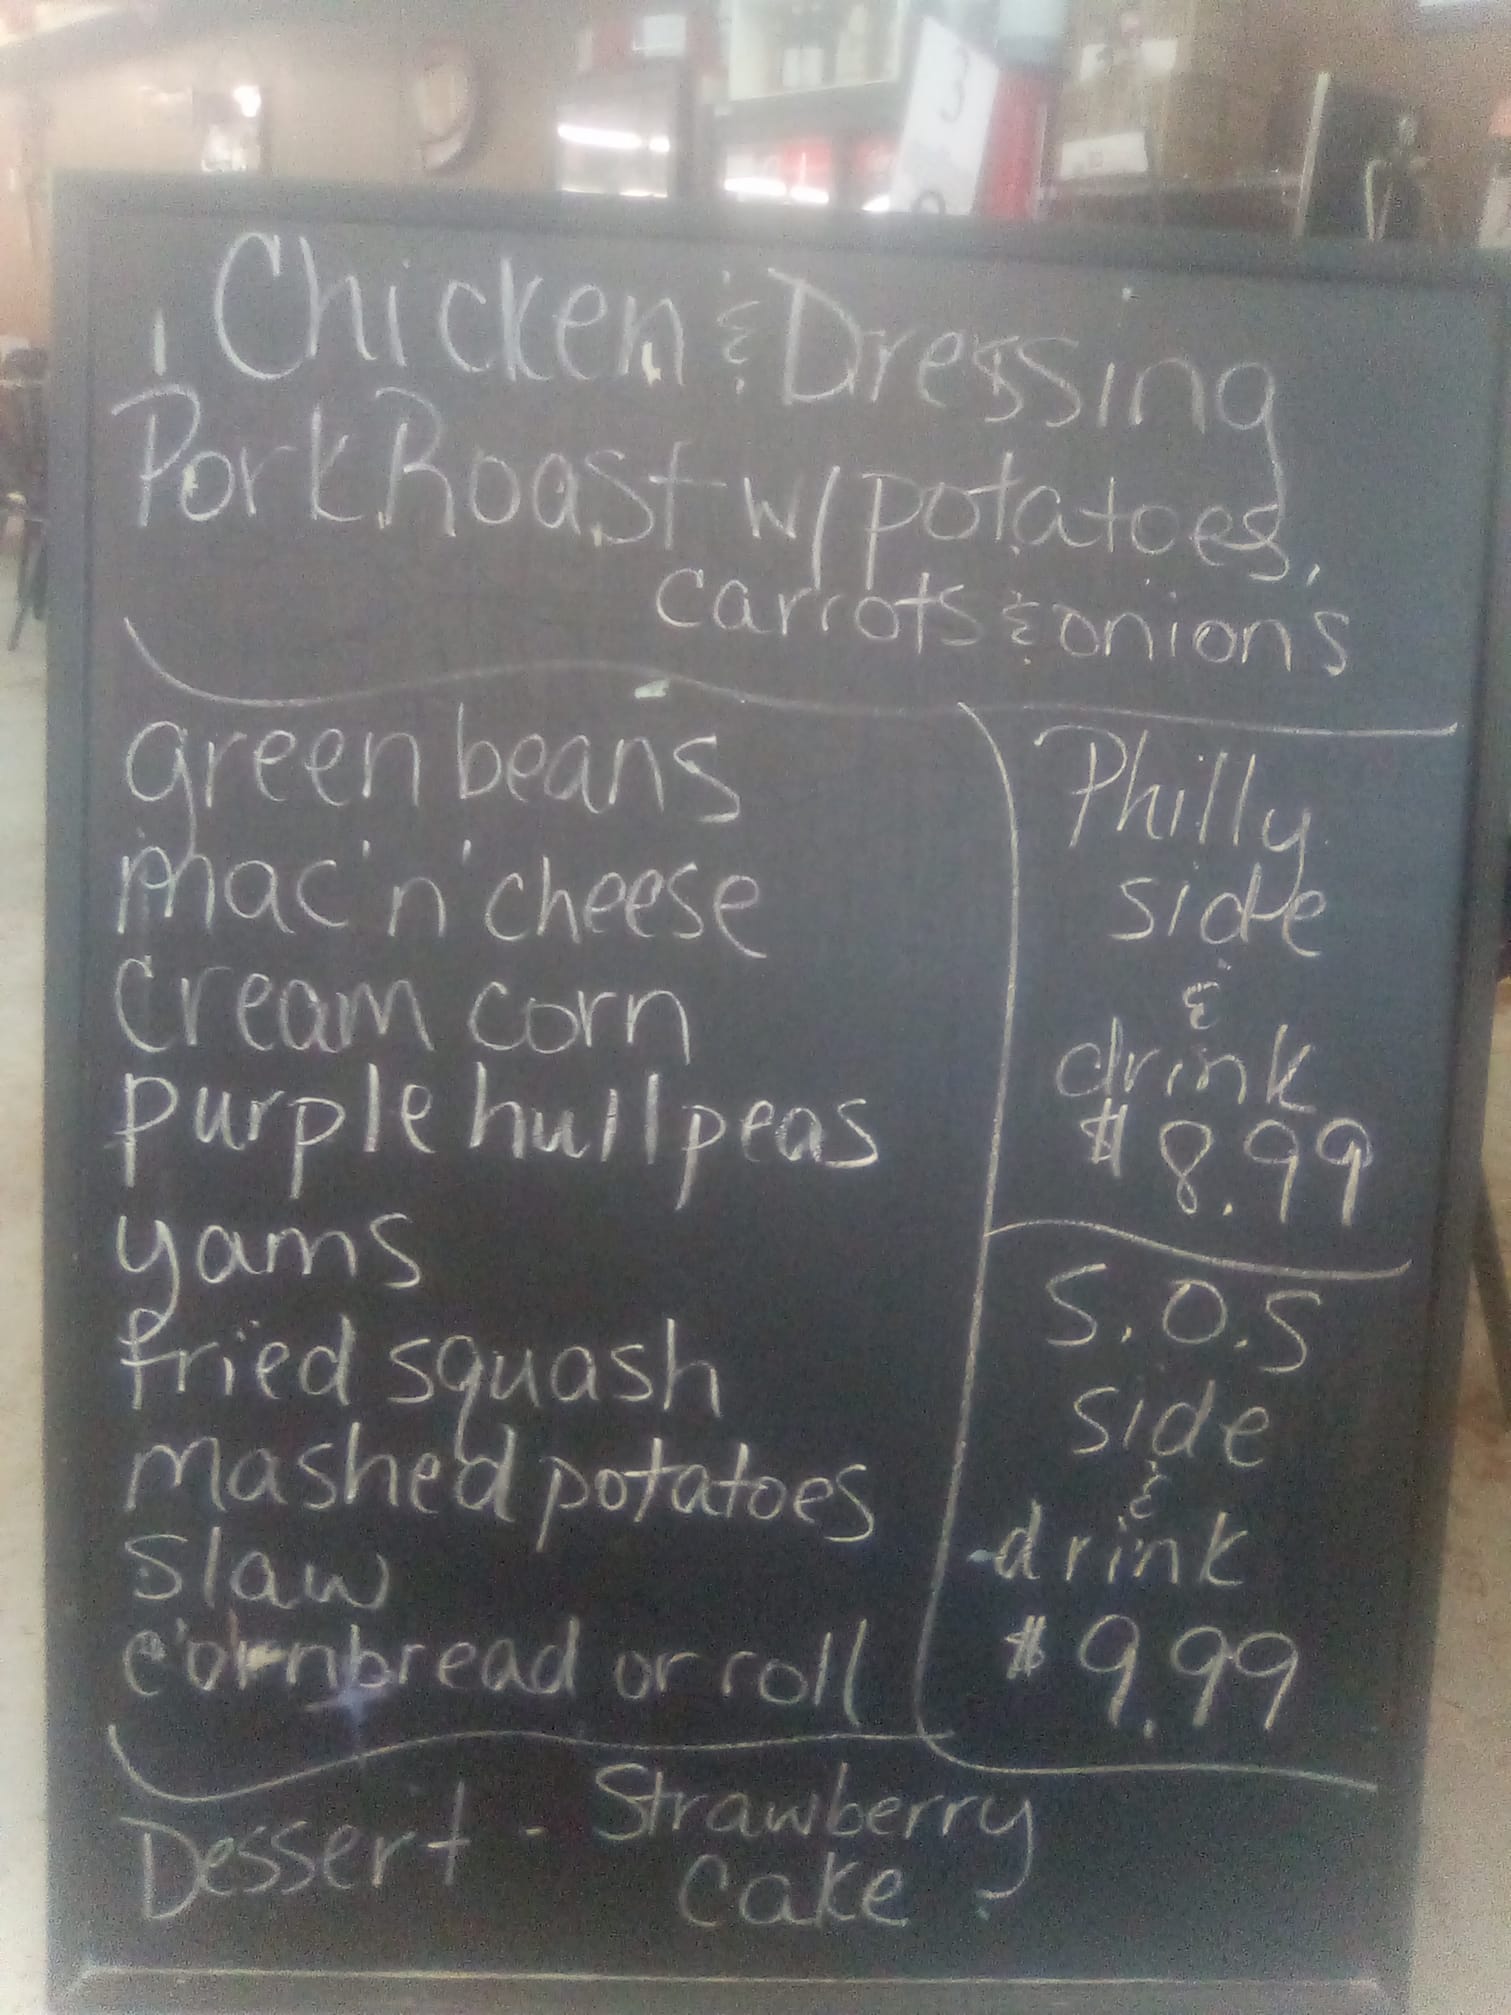 3
Chicken & Dressing
Pork Roast w/ potatoes,
carrots & onions
green beans
mac 'n' cheese
Cream corn
purple hull peas
yams
fried squash
mashed potatoes
Slaw
cornbread or roll
Philly
side
&
drink
$8.99
S.O.S
side
&
drink
$9.99
Dessert - Strawberry
Cake